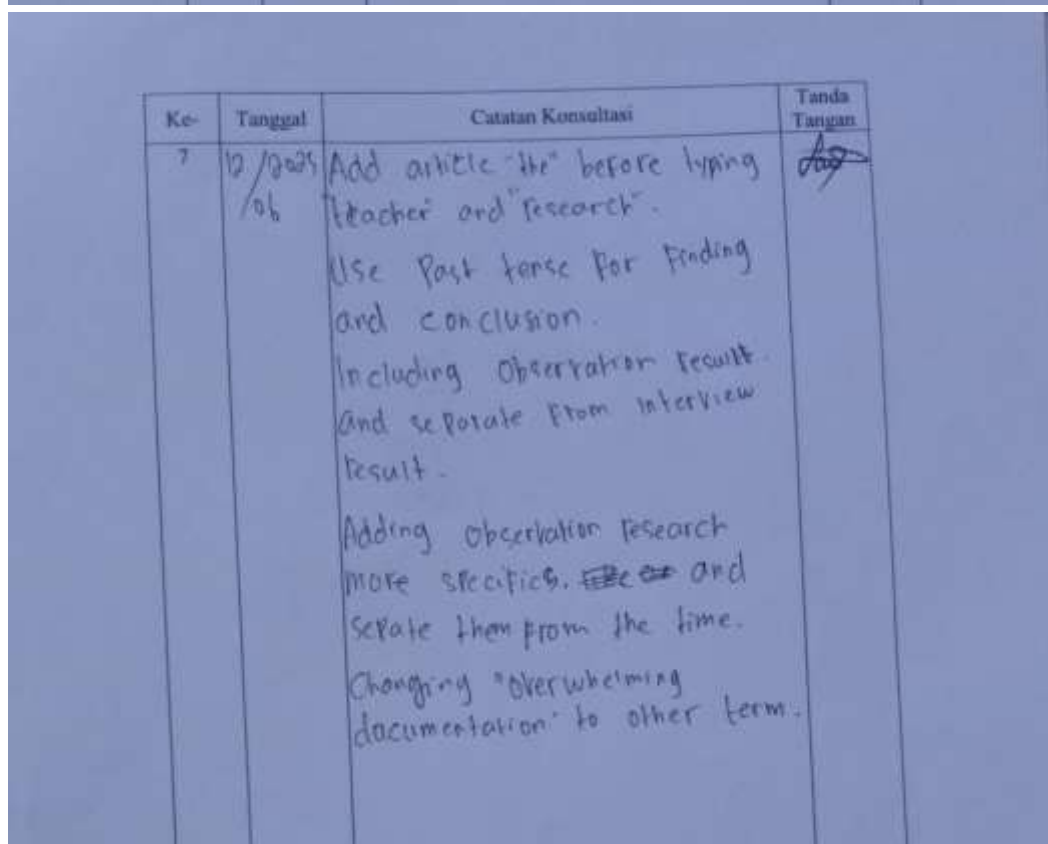 Ke- Tanggal Catatan Konsultasi Tanda Tangan
7 12/2025 /06 Add article "the" before typing
"teacher" and "research".
Use Past tense for Finding
and conclusion.
Including Observation result.
and separate From interview
result.
Adding observation research
more specifics. and
sepate them from the time.
Changing "overwhelming
documentation" to other term.